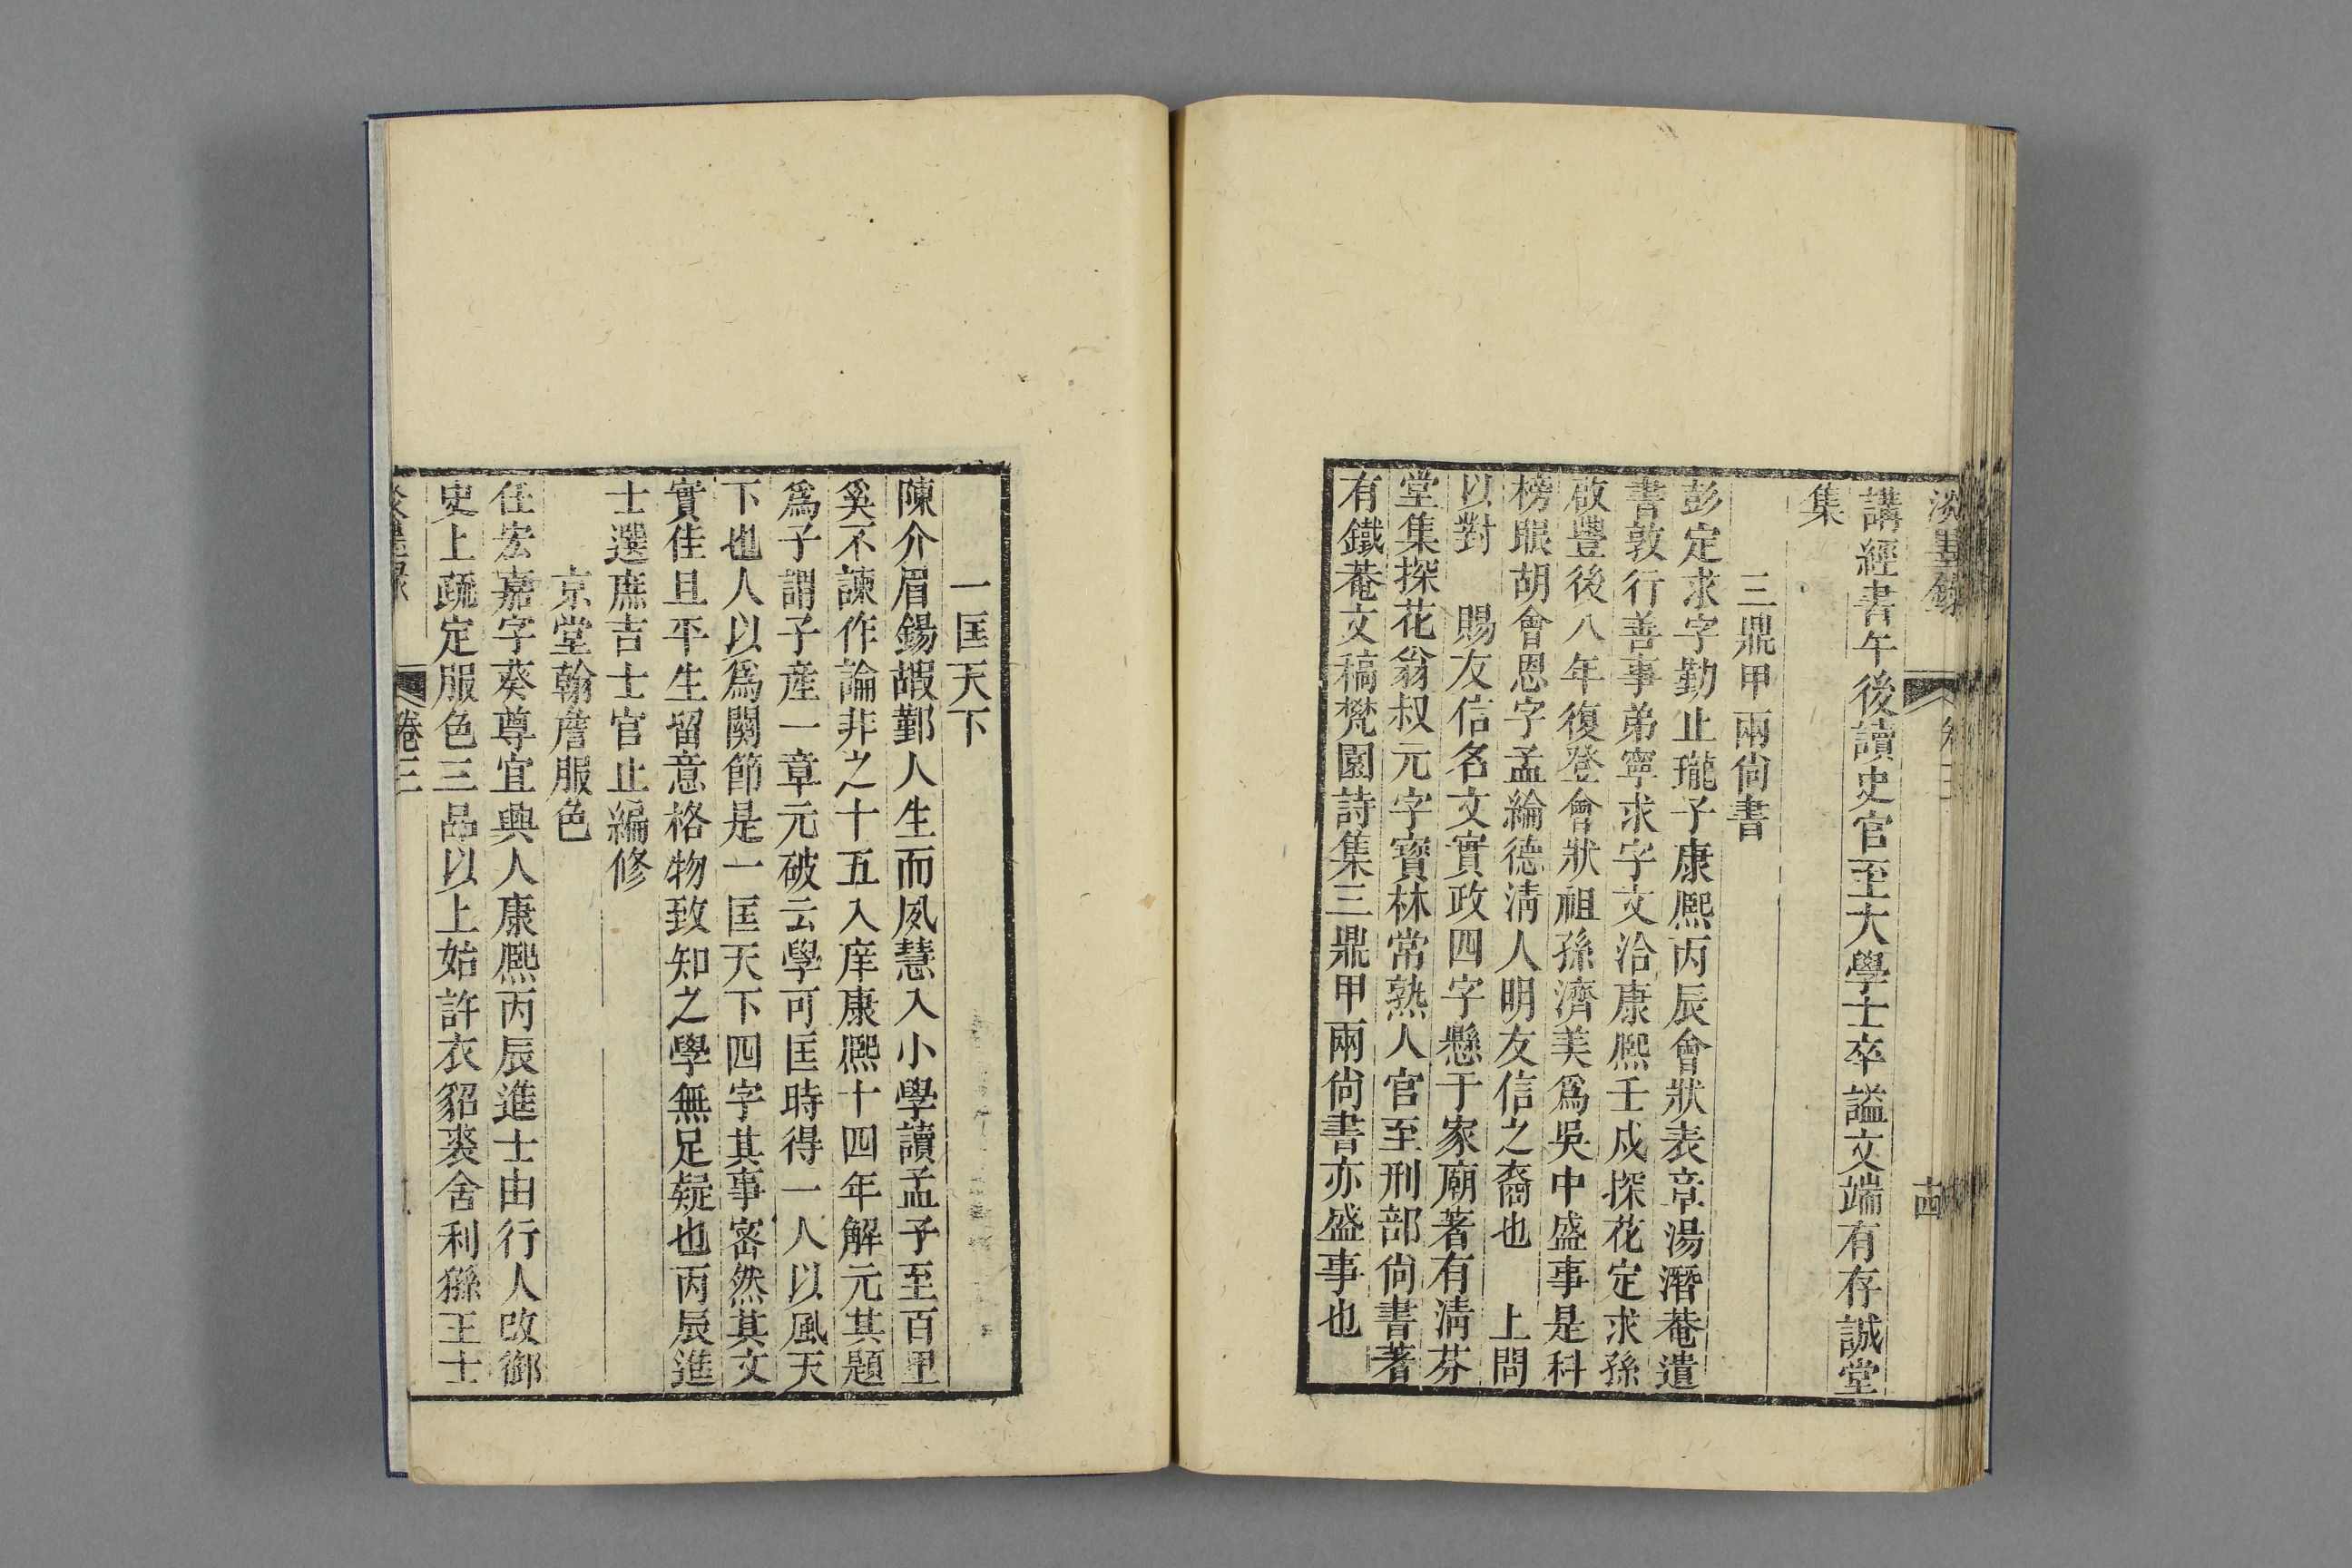 淡墨錄 卷三 十四
講經書午後讀史官至大學士卒謚文端有存誠堂
集
三鼎甲兩尚書
彭定求字勤止瓏子康熙丙辰會狀表章湯潛菴遺
書敦行善事弟寧求字文洽康熙壬戌探花定求孫
啟豐後八年復登會狀祖孫濟美爲吳中盛事是科
榜眼胡會恩字孟綸德淸人明友信之裔也 上問
以對 賜友信名文實政四字懸于家廟著有淸芬
堂集探花翁叔元字寳林常熟人官至刑部尚書著
有鐵菴文稿梵園詩集三鼎甲兩尚書亦盛事也
一匡天下
陳介眉錫嘏鄞人生而夙慧入小學讀孟子至百里
奚不諫作論非之十五入庠康熙十四年解元其題
爲子謂子產一章元破云學可匡時得一人以風天
下也人以爲關節是一匡天下四字其事密然其文
實佳且平生留意格物致知之學無足疑也丙辰進
士選庶吉士官止編修
京堂翰詹服色
任宏嘉字葵尊宜興人康熙丙辰進士由行人改御
史上疏定服色三品以上始許衣貂裘舍利猻王士
淡墨錄 卷三